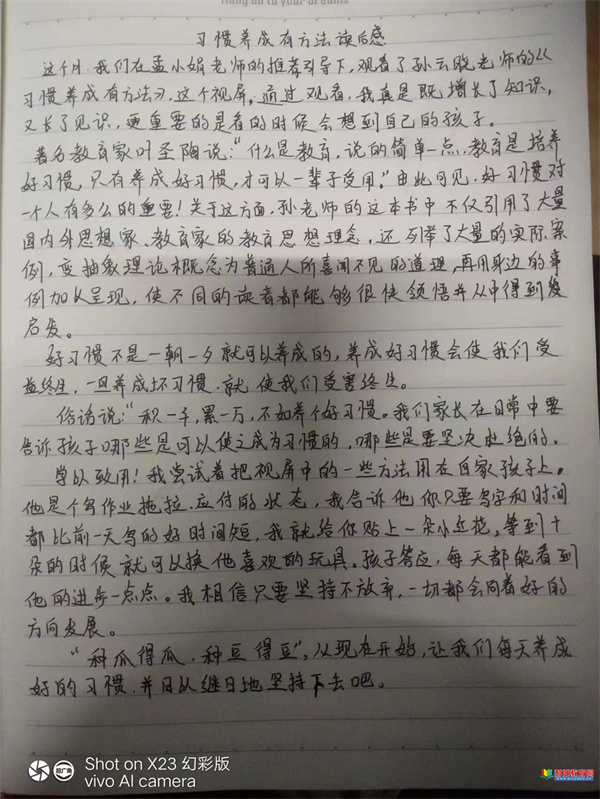 Hang on to your dreams
习惯养成有方法读后感
这个月.我们在孟小娟老师的推荐引导下,观看了孙云晓老师的《
习惯养成有方法》,这个视屏,通过观看,我真是既增长了知识,
又长了见识,更重要的是看的时候会想到自己的孩子.
著名教育家叶圣陶说:“什么是教育,说的简单一点.教育是培养
好习惯,只有养成好习惯,才可以一辈子受用。”由此可见.好习惯对
一个人有多么的重要!关于这方面.孙老师的这本书中不仅引用了大量
国内外思想家、教育家的教育思想理念,还列举了大量的实际案
例,变抽象理论概念为普通人所喜闻不见的道理,再用身边的事
例加以呈现,使不同的读者都能够很快领悟并从中得到发
启发。
好习惯不是一朝一夕就可以养成的,养成好习惯会使我们受
益终生,一旦养成坏习惯.就使我们受害终生。
俗话说:“积一千,累一万,不如养个好习惯。我们家长在日常中要
告诉孩子哪些是可以使之成为习惯的,哪些是要坚决杜绝的.
学以致用!我尝试着把视屏中的一些方法用在自家孩子上。
他是个写作业拖拉.应付的状态,我告诉他你只要写字和时间
都比前一天写的好时间短,我就给你贴上一朵小红花,等到十
朵的时候就可以换他喜欢的玩具.孩子答应,每天都能看到
他的进步一点点。我相信只要坚持不放弃,一切都会向着好的
方向发展。
“种瓜得瓜.种豆得豆”,从现在开始,让我们每天养成
好的习惯.并日以继日地坚持下去吧。
Shot on X23 幻彩版
vivo AI camera